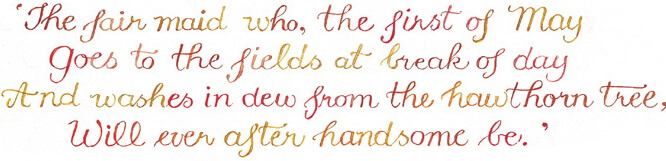 'The fair maid who, the first of May
Goes to the fields at break of day
And washes in dew from the hawthorn tree,
Will ever after handsome be.'